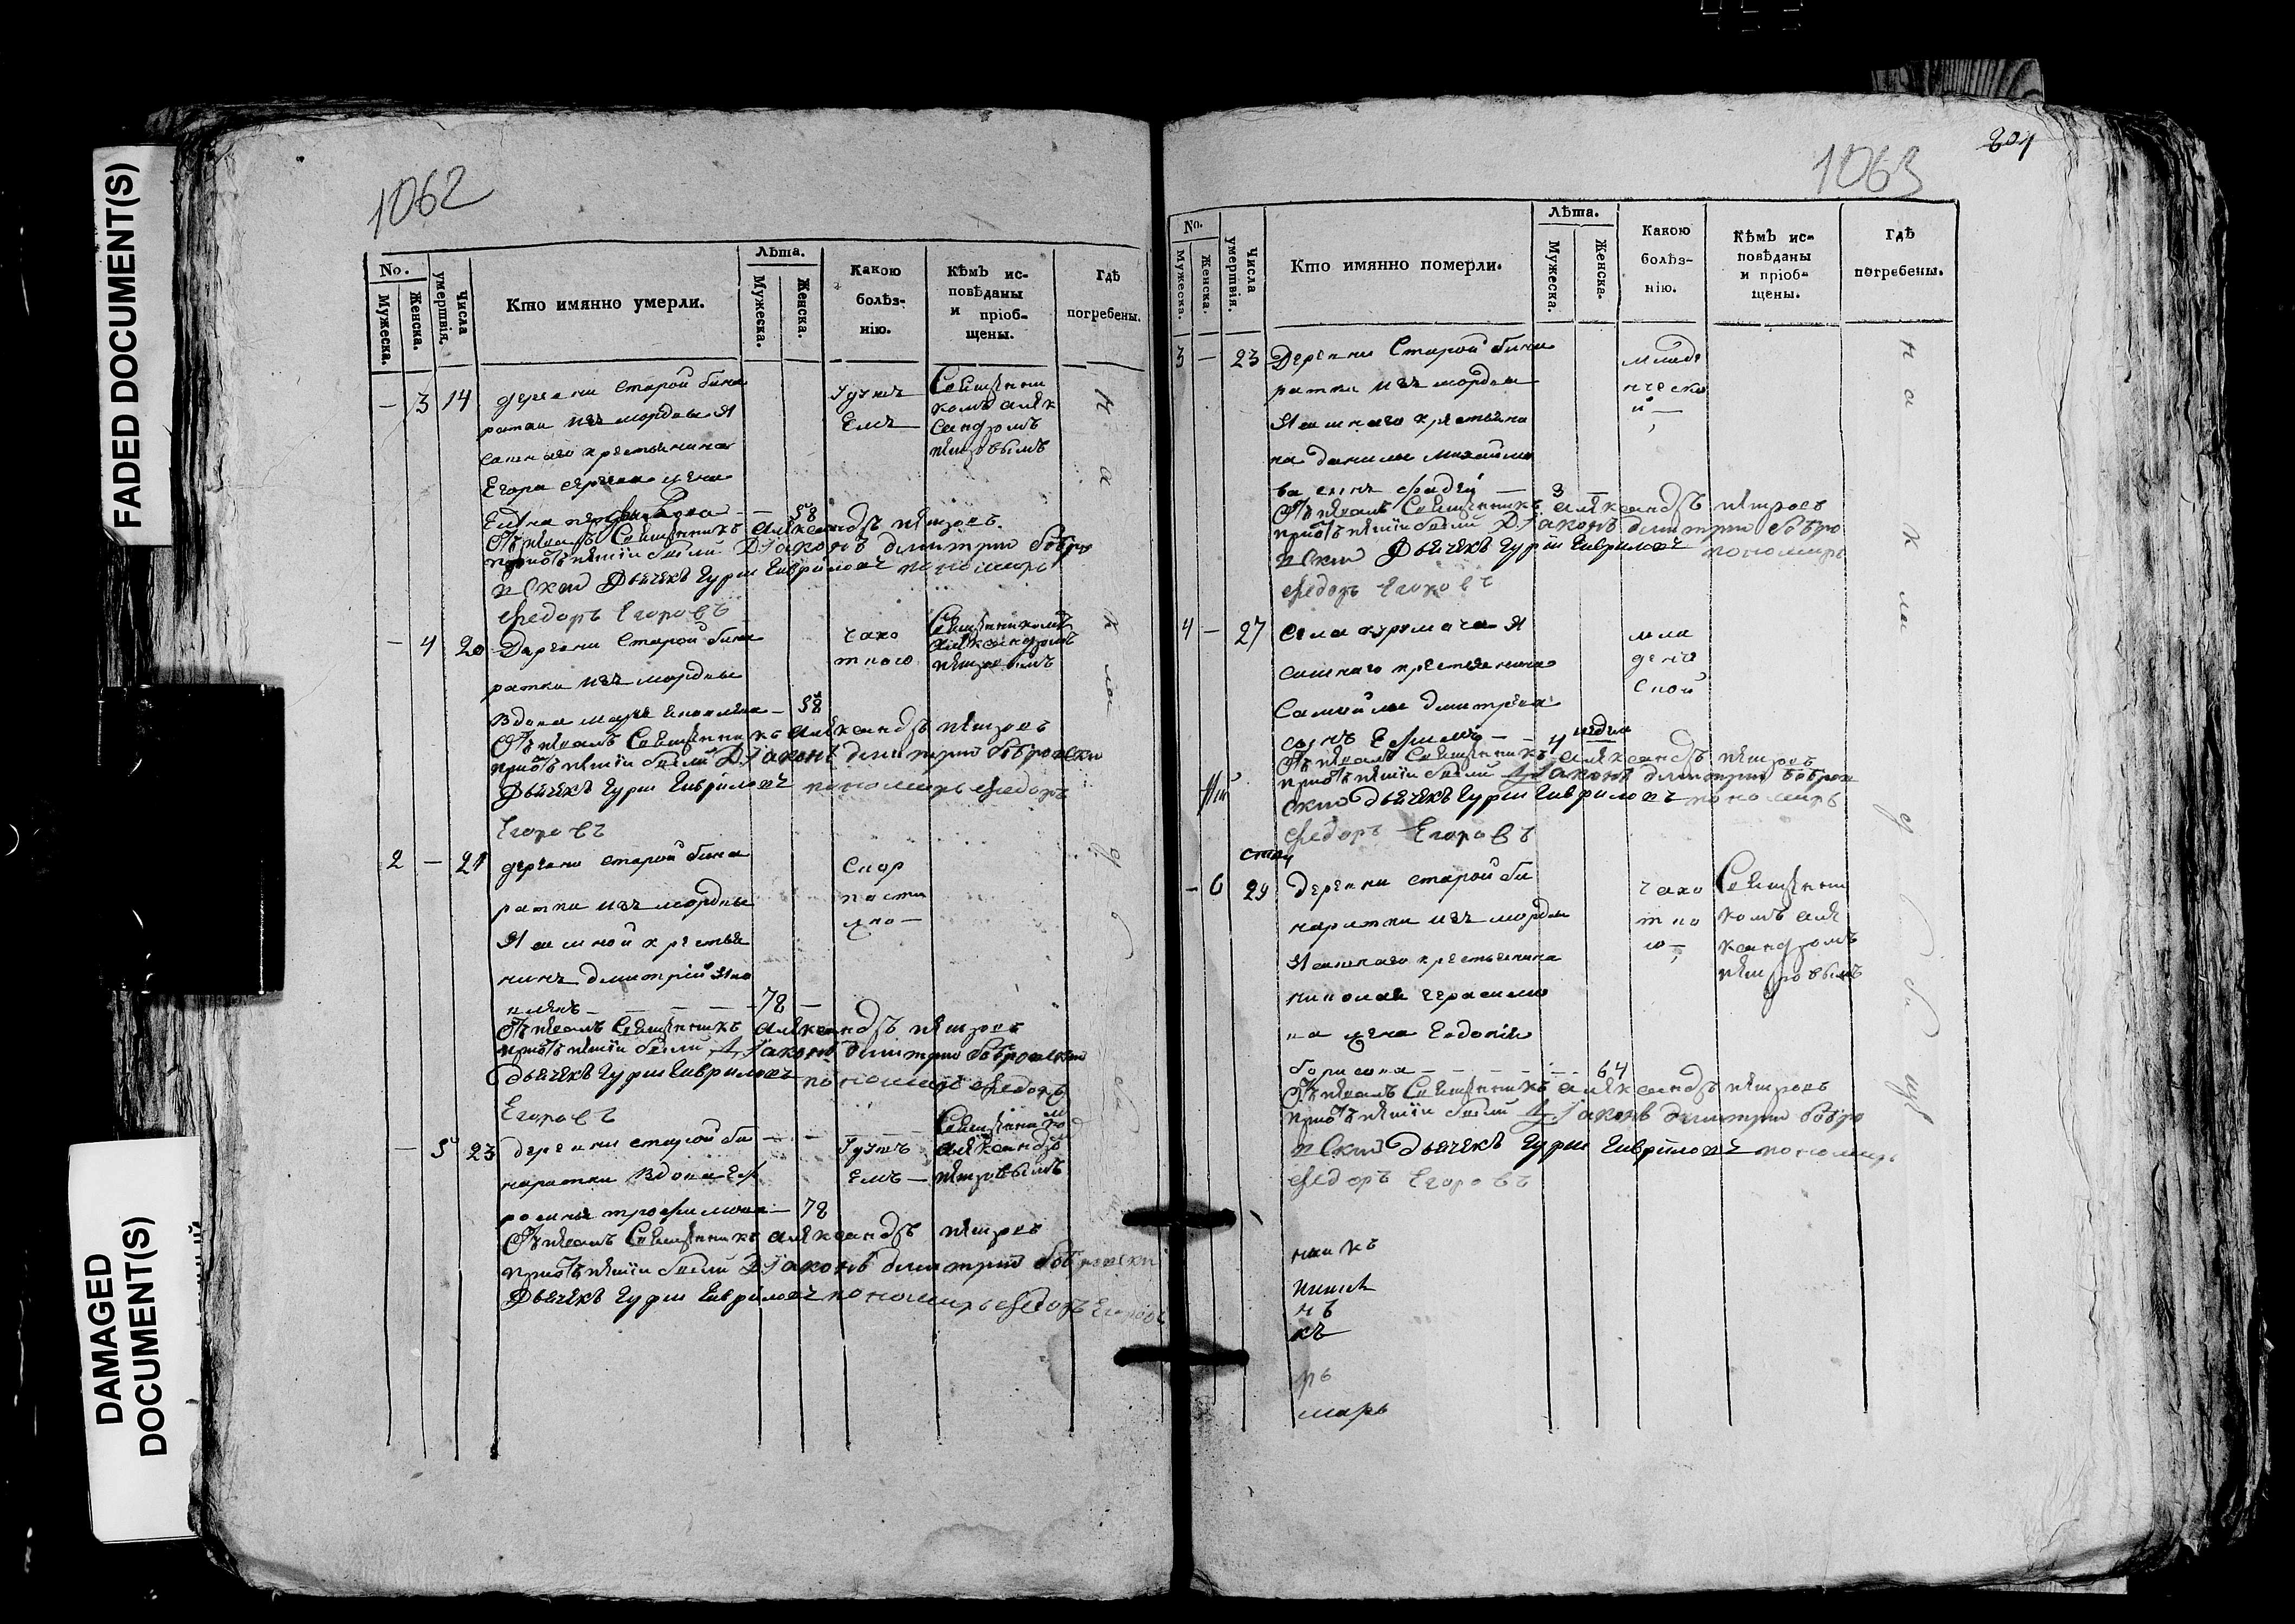 FADED DOCUMENT(S)
DAMAGED
DOCUMENT(S)
1062
No.
Мужеска.
Женска.
Числа
умертвія.
Кто имянно умерли.
Лѣта.
Мужеска.
Женска.
Какою
болѣз-
нію.
Кѣмъ ис-
повѣданы
и пріоб-
щены.
Гдѣ
погребены.
— 3 14 деревни Старой бина
ратки изъ мордвы Я
сашнаго крестьянина
Егора жена
58
Удушь
емъ
Священни
комъ алек
сандромъ
петровымъ
Отпевалъ Священникъ александръ петровъ
при отпѣтіи были Діаконъ димитрий бобро
вски Дьячекъ Гурии Гавриловъ пономарь
Федоръ Егоровъ
— 4 20 Деревни Старой бина
ратки изъ мордвы
Вдова 58
чахо
ткою
Священникомъ
александромъ
петровымъ
Отпевалъ Священникъ александръ петровъ
при отпѣтіи были Діаконъ димитрий бобровски
Дьячекъ Гурии Гавриловъ пономарь Федоръ
Егоровъ
2 — 21 деревни Старой бина
ратки изъ мордвы
Ясашной крестья
нинъ димитрій Яко
влевъ — 78 —
Скор
пости
жно —
Отпевалъ Священникъ александръ петровъ
при отпѣтіи были Діаконъ димитрии бобровски
дьячекъ Гурии Гавриловъ пономарь Федоръ
Егоровъ
— 5 23 деревни старой би
наратки Вдова Еф
росинья трофимова — 78
Удушь
емъ —
Священником
александром
петровымъ
Отпевалъ Священникъ александръ петровъ
при отпѣтіи были Діаконъ димитрий бобровски
Дьячекъ Гурии Гавриловъ пономарь Федоръ Егоровъ
на кла
1063
201
No.
Мужеска.
Женска.
Числа
умертвія.
Кто имянно померли.
Лѣта.
Мужеска.
Женска.
Какою
болѣз-
нію.
Кѣмъ ис-
повѣданы
и пріоб-
щены.
Гдѣ
погребены.
3 — 23 Деревни Старой бина
ратки изъ мордвы
Ясашнаго крестьяни
на данилы михайло
ва сынъ фадей — 3 —
младе
ческо
й —
Отпевалъ Священникъ александръ петровъ
при отпѣтіи были Діаконъ димитрии бобро
вски Дьячекъ Гурии Гавриловъ пономарь
Федоръ Егоровъ
4 — 27 Села курмоча Я
сашнаго крестьянина
Самойлы дмитрева
сынъ Ефимъ — 4 недели
мла
денче
ской
Отпевалъ Священникъ александръ петровъ
при отпѣтіи были Діаконъ димитрии бобров
ски дьячекъ Гурии Гавриловъ пономарь
Федоръ Егоровъ
— 6 29 деревни старой би
наратки изъ мордвы
Ясашнаго крестьянина
николая герасимо
ва жена Евдокия
борисова — 64
чахо
тко
ю —
Священни
комъ але
ксандромъ
петровымъ
Отпевалъ Священникъ александръ петровъ
при отпѣтіи были Діаконъ димитрии бобро
вски дьячекъ Гурии Гавриловъ пономарь
Федоръ Егоровъ
на кладбищѣ
никъ
нъ
къ
рь
марь